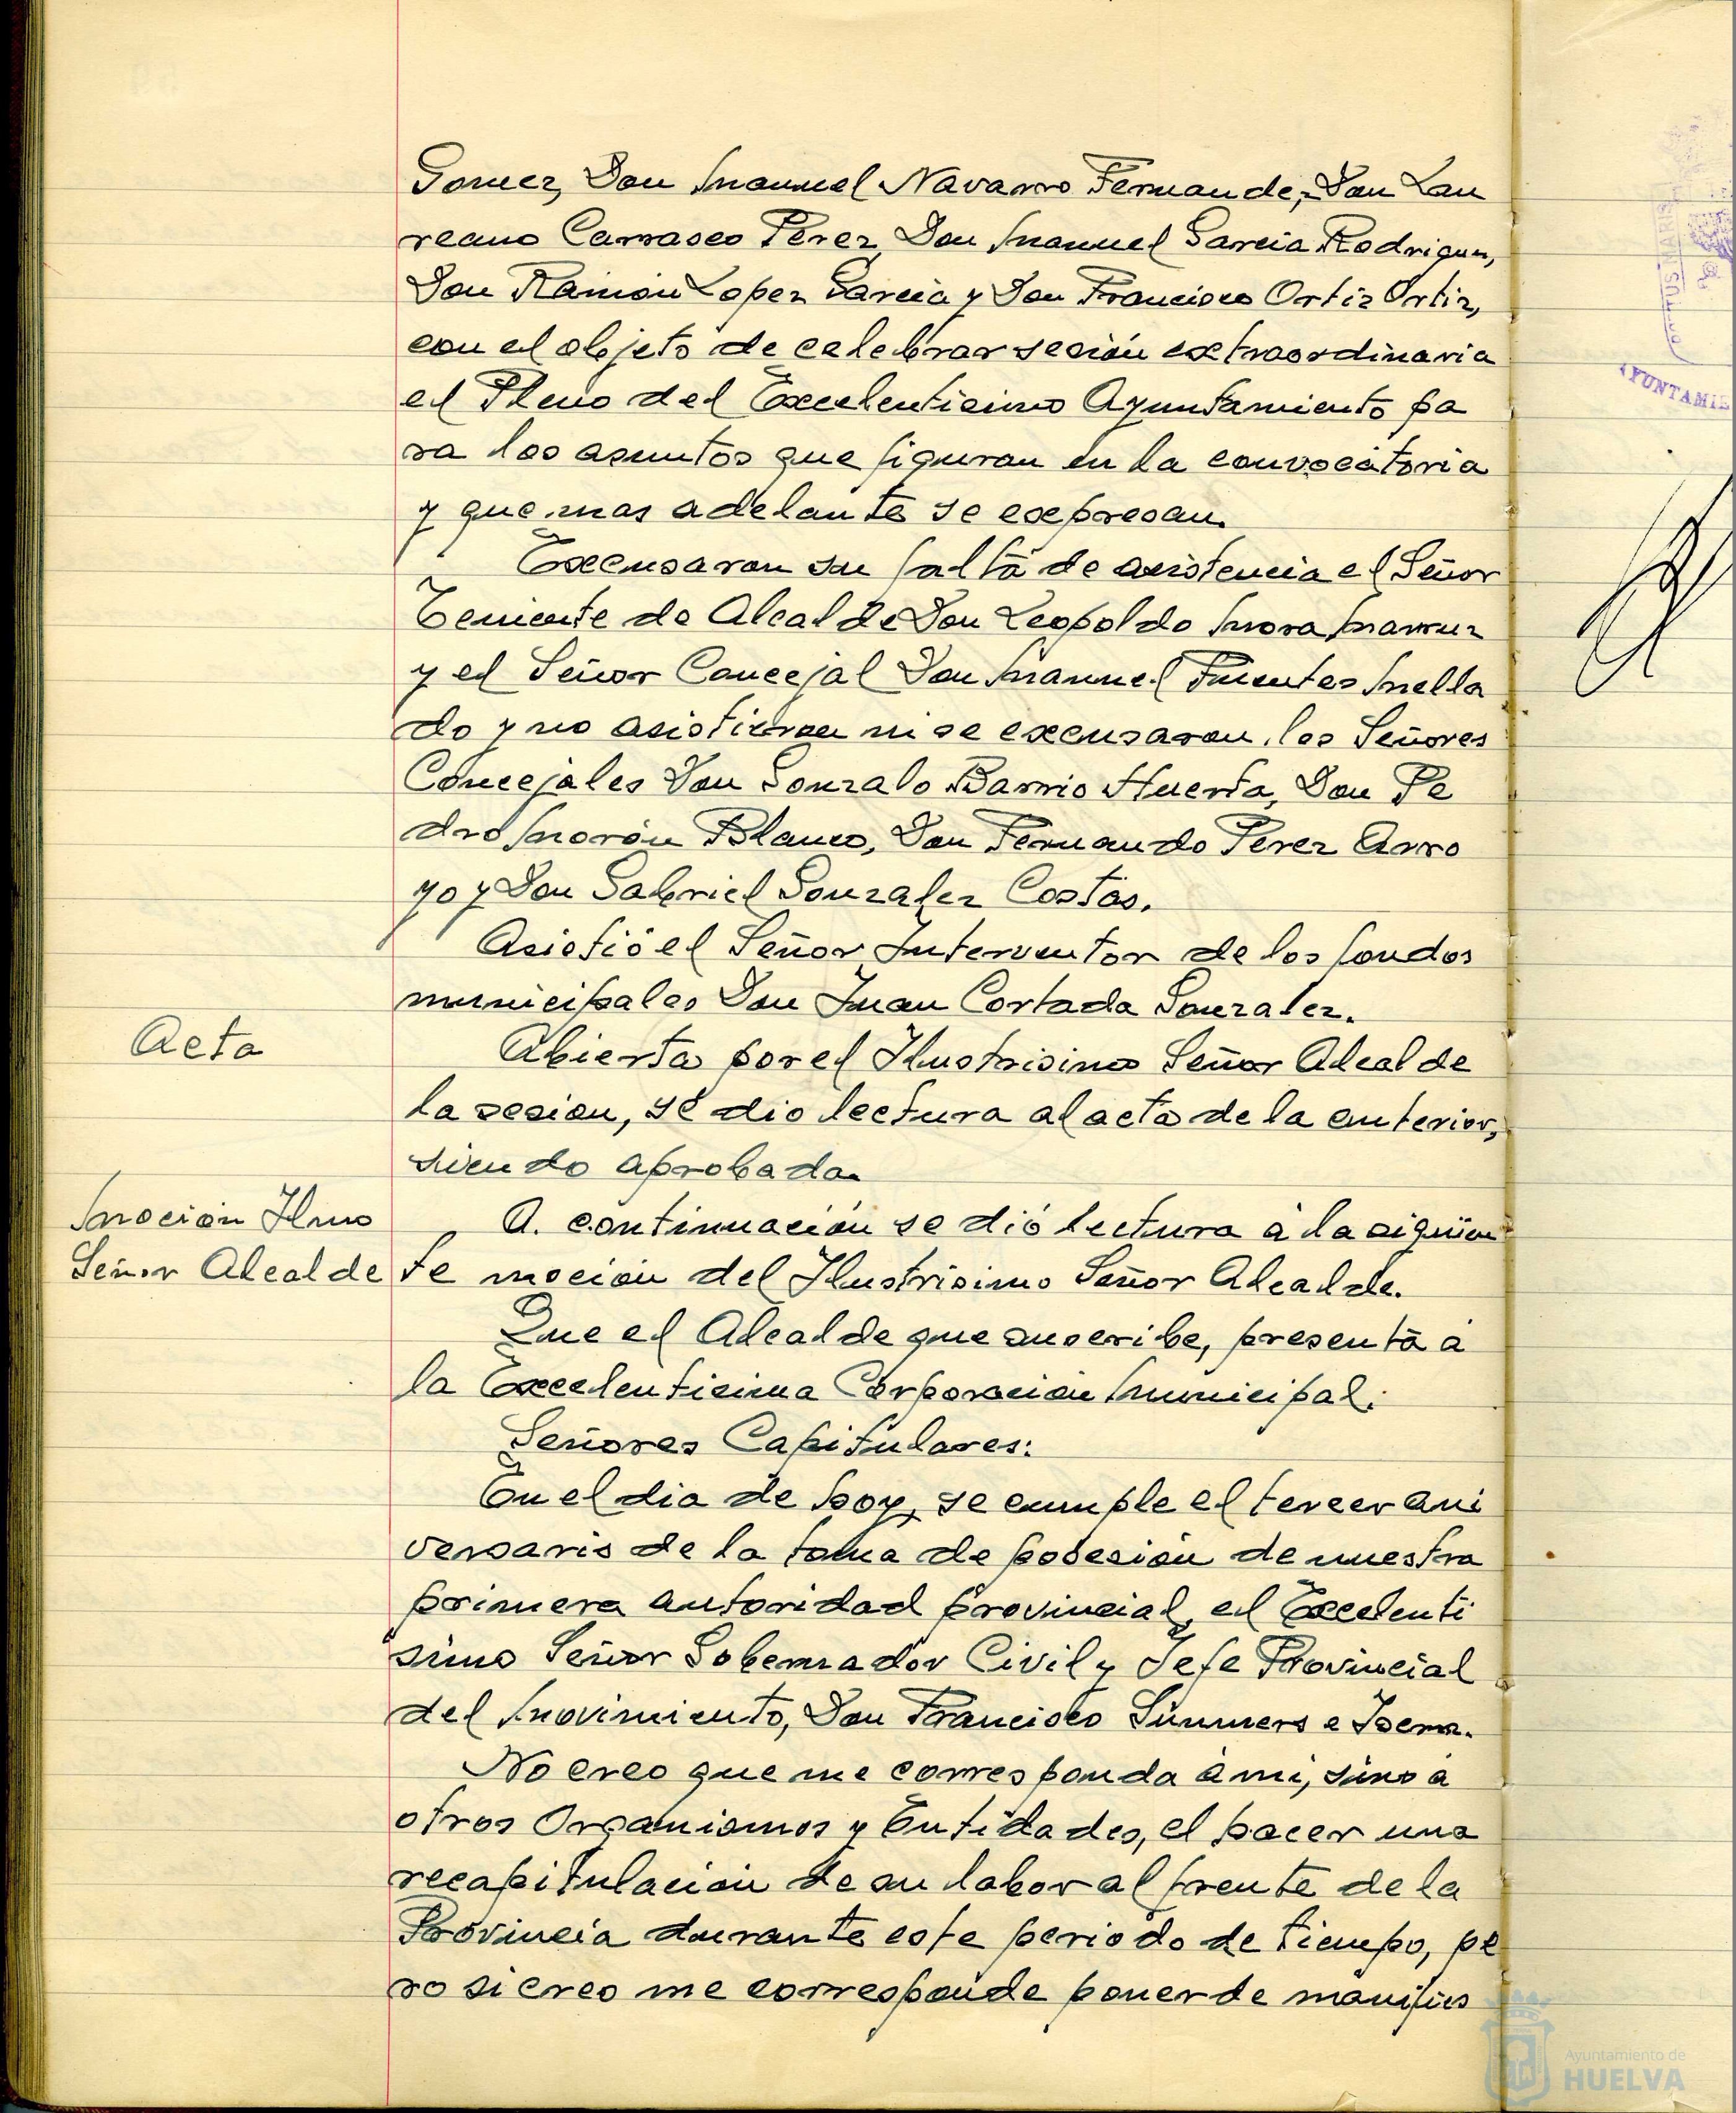 Gomez, Don Manuel Navarro Fernandez, Don Lau
reano Carrasco Perez, Don Manuel Garcia Rodriguez,
Don Ramón Lopez Garcia y Don Francisco Ortiz Ortiz,
con el objeto de celebrar sesión extraordinaria
el Pleno del Excelentisimo Ayuntamiento pa
ra los asuntos que figuran en la convocatoria
y que mas adelante se expresan.
Excusaron su falta de asistencia el Señor
Teniente de Alcalde Don Leopoldo Mora
y el Señor Concejal Don Manuel Fuentes Mella
do y no asistieron ni se excusaron, los Señores
Concejales Don Gonzalo Barrio Huerta, Don Pe
dro Morón Blanco, Don Fernando Perez Arro
yo y Don Gabriel Gonzalez Costas.
Asistió el Señor Interventor de los fondos
municipales Don Juan Cortada Gonzalez.
Acta
Abierta por el Ilustrisimo Señor Alcalde
la sesion, se dio lectura al acta de la anterior,
siendo aprobada.
Moción Ilmo
Señor Alcalde
A continuación se dió lectura a la siguien
te moción del Ilustrisimo Señor Alcalde.
Que el Alcalde que suscribe, presenta a
la Excelentisima Corporacion Municipal:
Señores Capitulares:
En el dia de hoy, se cumple el tercer ani
versario de la toma de posesión de nuestra
primera autoridad provincial, el Excelenti
simo Señor Gobernador Civil y Jefe Provincial
del Movimiento, Don Francisco Summers e Isern.
No creo que me corresponda a mi, sino a
otros Organismos y Entidades, el hacer una
recapitulación de su labor al frente de la
Provincia durante este periodo de tiempo, pe
ro si creo me corresponde poner de manifies
AYUNTAMIE
Ayuntamiento de
HUELVA